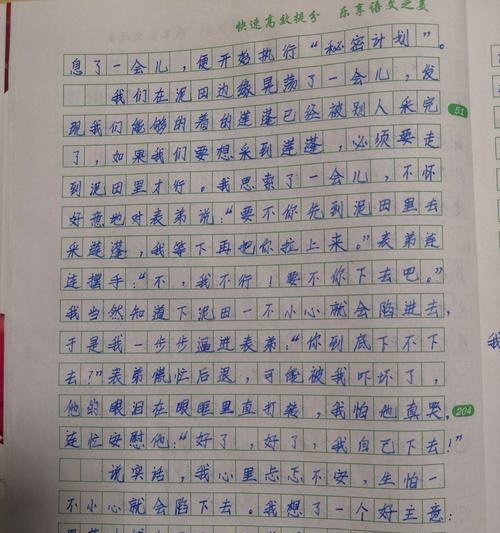 快速高效提分 乐享语文之美
息了一会儿，便开始执行“秘密计划”。
我们在泥田边缘晃荡了一会儿，发
现我们能够的着的莲蓬已经被别人采完
了，如果我们要想采到莲蓬，必须要走
51
到泥田里才行。我思索了一会儿，不怀
好意地对表弟说：“要不你先到泥田里去
采莲蓬，我等下再把你拉上来。”表弟连
连摆手：“不，我不行！要不你下去吧。”
我当然知道下泥田一不小心就会陷进去，
于是我一步步逼进表弟：“你到底下不下
去？”表弟慌忙后退，可能被我吓坏了，
他的眼泪在眼眶里直打转，我怕他真哭，
204
连忙安慰他：“好了，好了，我自己下去！”
说实话，我心里忐忑不安，生怕一
不小心就会陷下去。我想了一个好主意：
我